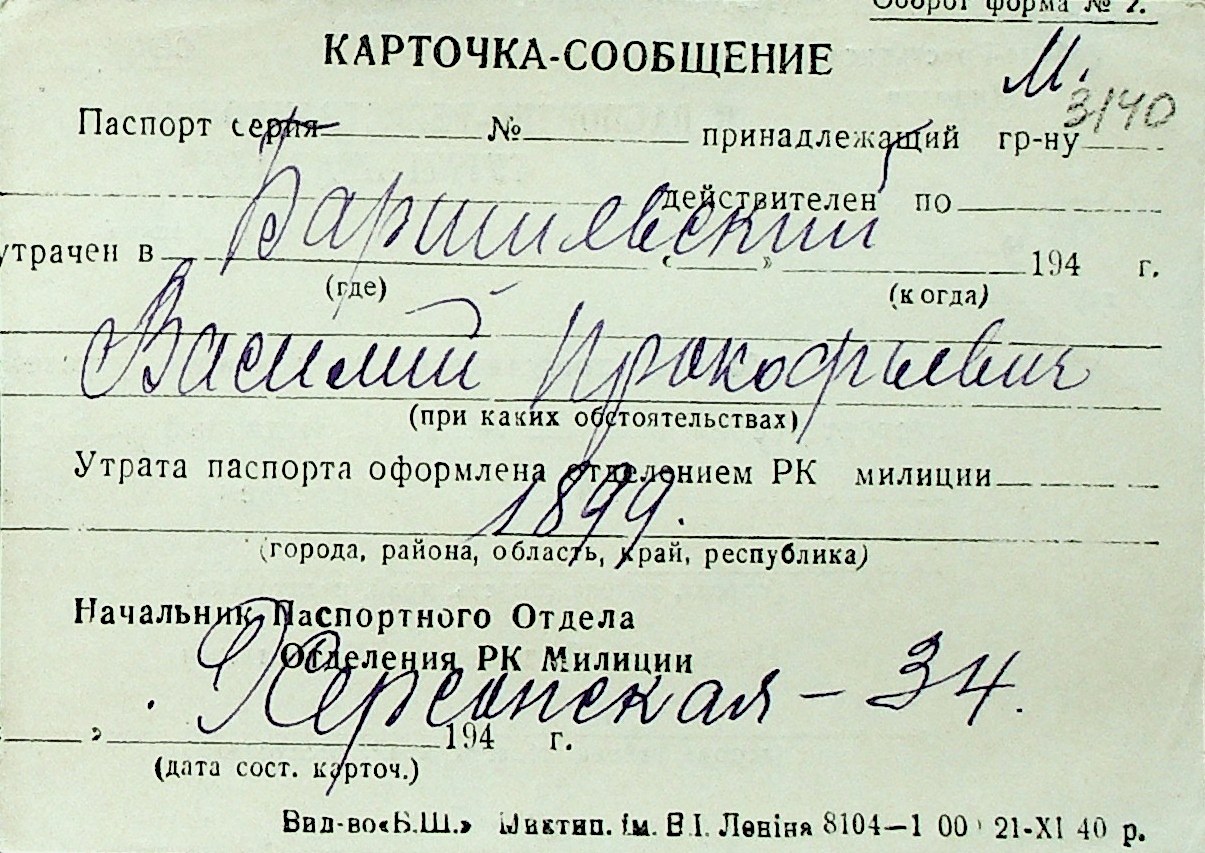 Оборот форма № 2.
КАРТОЧКА-СООБЩЕНИЕ
М.
3/40
Паспорт серия № принадлежащий гр-ну
действителен по
Варшилевский
утрачен в « » 194 г.
(где) (когда)
Василий Прокофьевич
(при каких обстоятельствах)
Утрата паспорта оформлена отделением РК милиции
1899.
(города, района, область, край, республика)
Начальник Паспортного Отдела
Отделения РК Милиции
Херсонская – 34.
» 194 г.
(дата сост. карточ.)
Вид-во «Б.Ш.» Миктип. ім. В.І. Леніна 8104—1 00 21-XI 40 р.